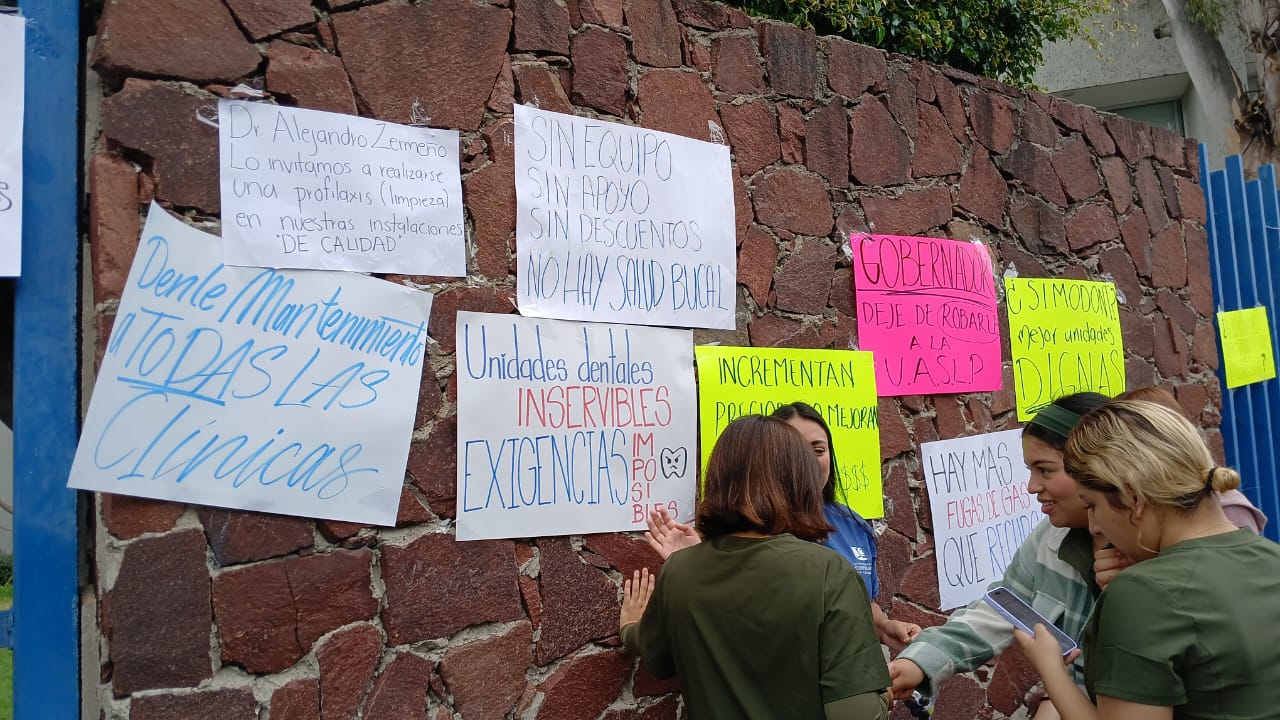 Dr Alejandro Zermeño
Lo invitamos a realizarse
una profilaxis (limpieza)
en nuestras instalaciones
"DE CALIDAD"
SIN EQUIPO
SIN APOYO
SIN DESCUENTOS
NO HAY SALUD BUCAL
Denle Mantenimiento
a TODAS LAS
Clínicas
Unidades dentales
INSERVIBLES
EXIGENCIAS
IM
PO
SI
BLES
INCREMENTAN
MEJORAN
$$$
GOBERNADOR
DEJE DE ROBARLE
A LA
U.A.S.L.P
¿SIMODONT?
mejor unidades
DIGNAS
HAY MAS
FUGAS DE GAS
QUE
?